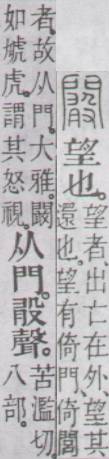 闞 望也。望者、出亡在外、望其
還也。望有倚門倚閭
者。故从門。大雅。闞
如虓虎。謂其怒視。从門。𣪏聲。苦濫切。
八部。